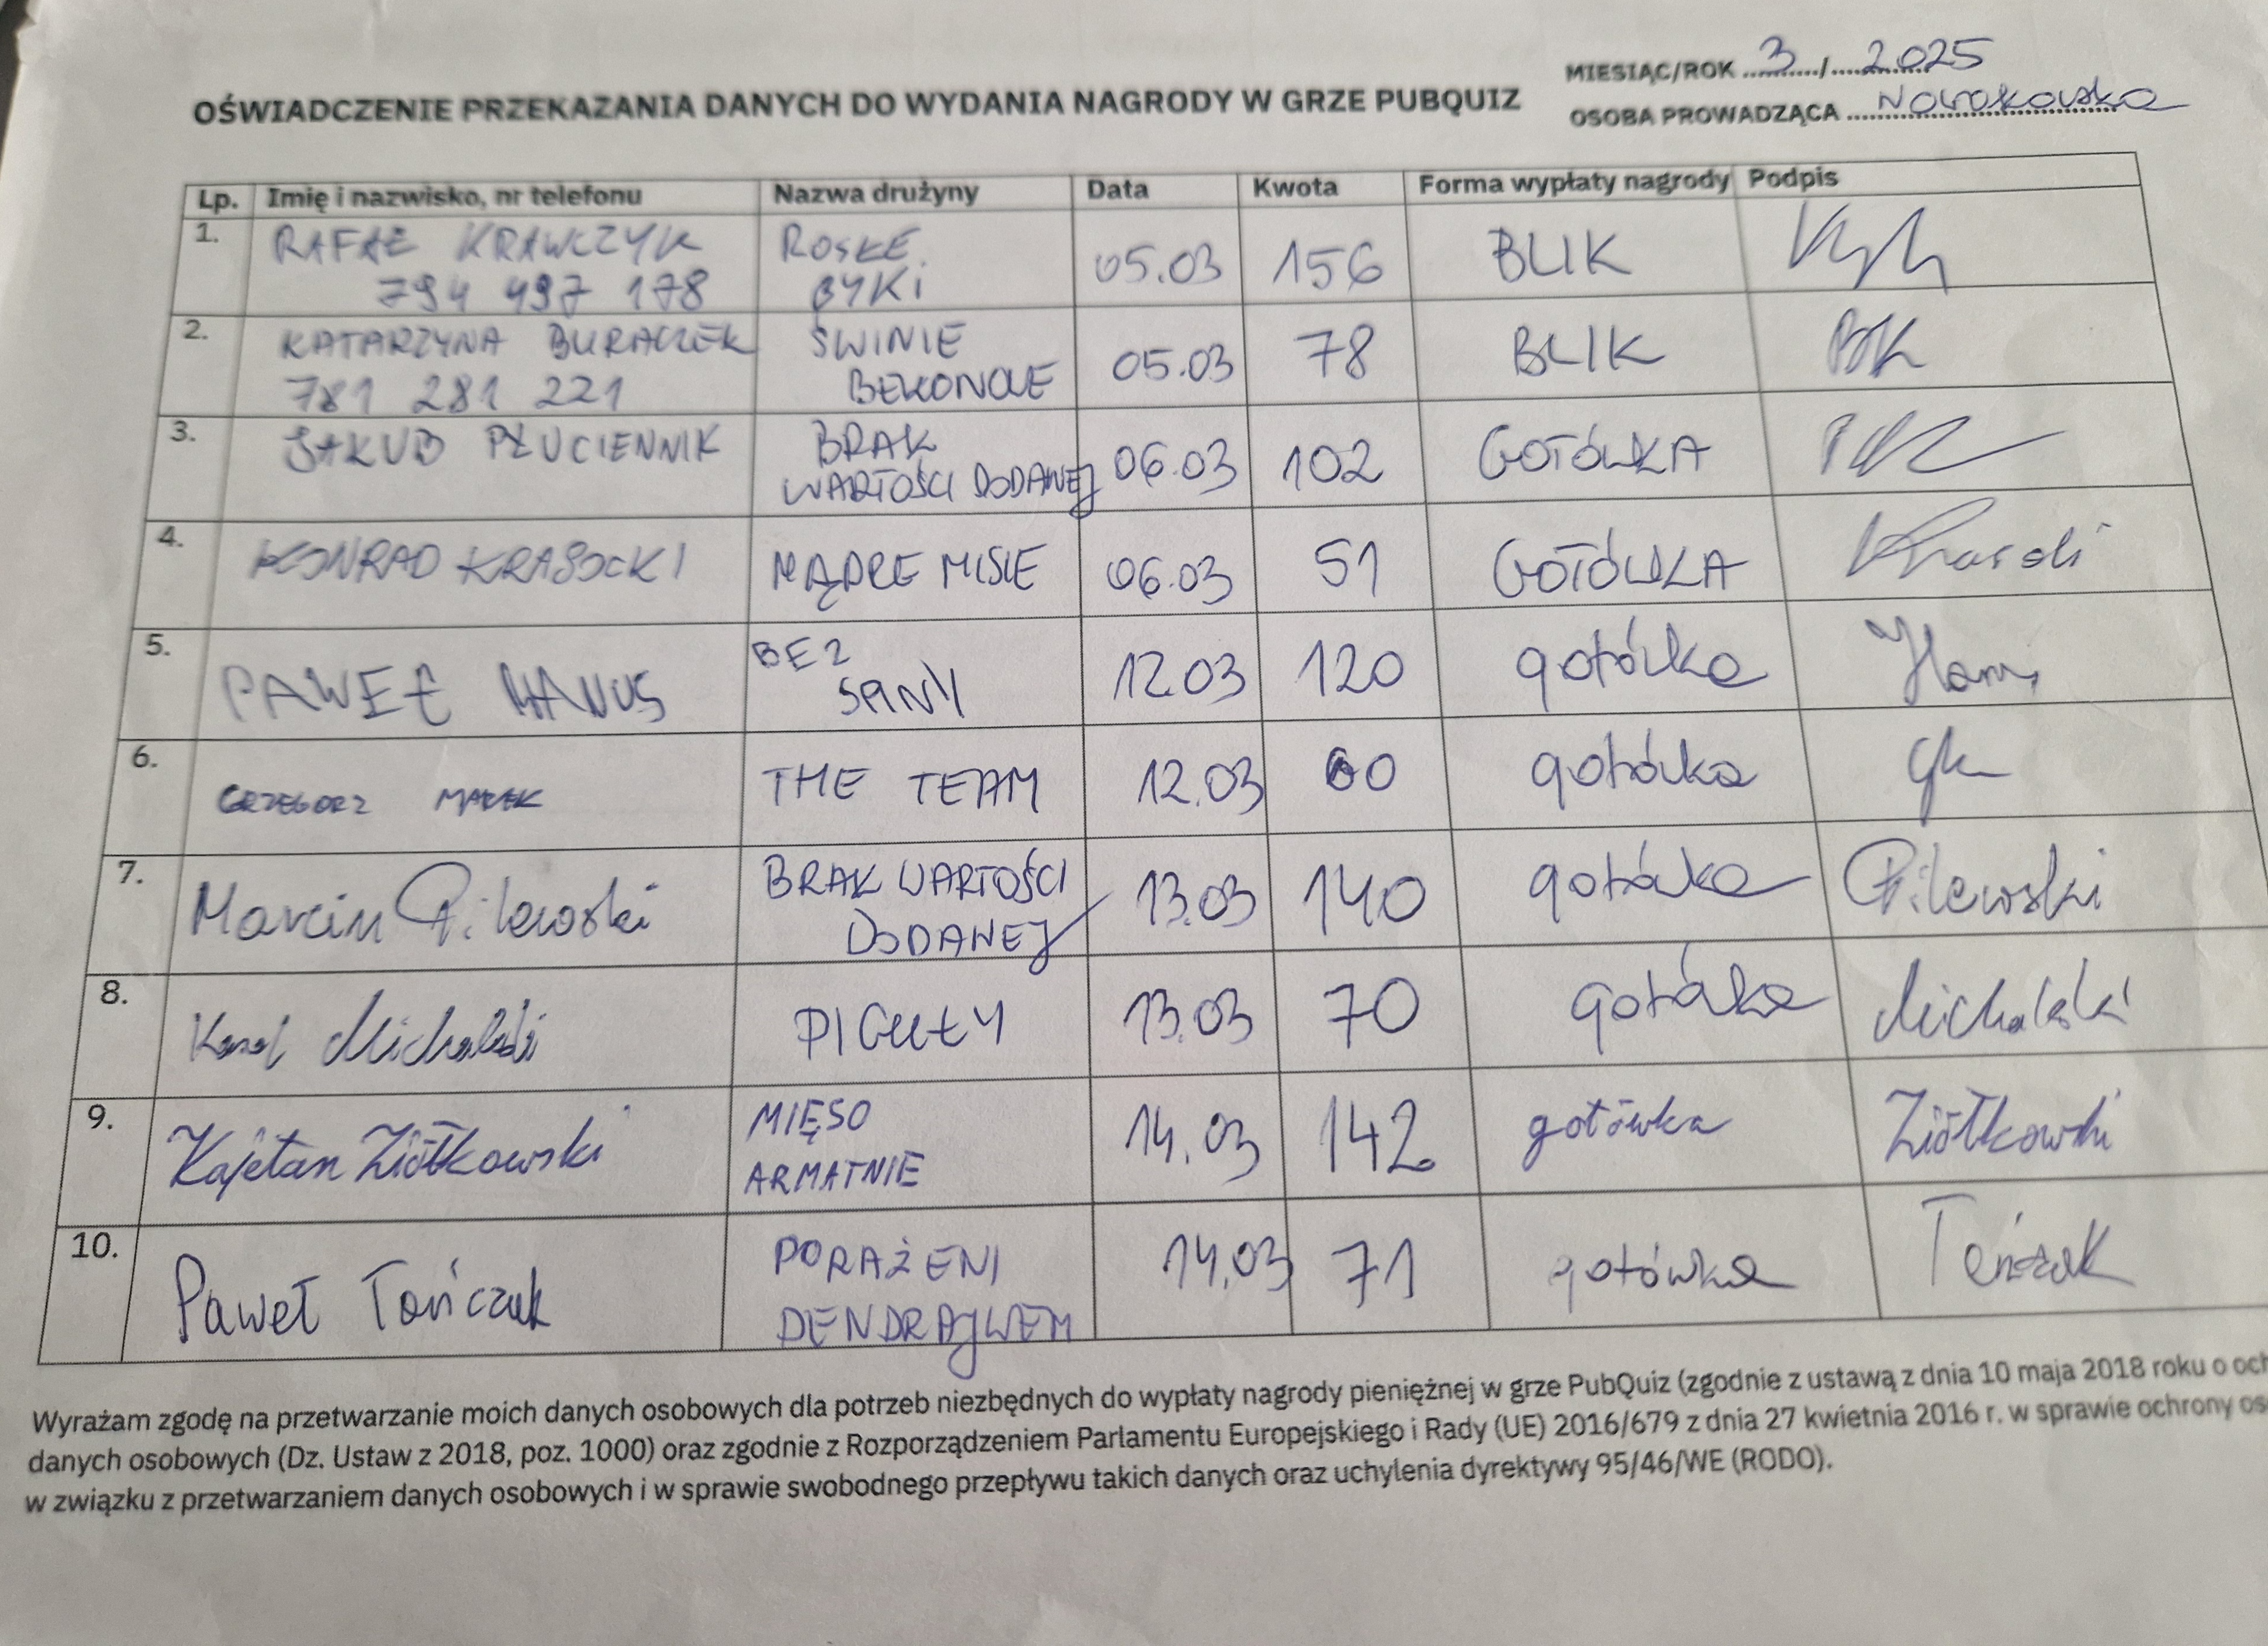 MIESIĄC/ROK 3 / 2025
OŚWIADCZENIE PRZEKAZANIA DANYCH DO WYDANIA NAGRODY W GRZE PUBQUIZ
OSOBA PROWADZĄCA Nowakowska
Lp. Imię i nazwisko, nr telefonu Nazwa drużyny Data Kwota Forma wypłaty nagrody Podpis
1. RAFAŁ KRAWCZYK ROSŁE 05.03 156 BLIK
794 497 178 BYKI
2. KATARZYNA BURACZEK ŚWINIE 05.03 78 BLIK
781 281 221 BEKONOWE
3. JAKUB PŁUCIENNIK BRAK 06.03 102 GOTÓWKA
WARTOŚCI DODANEJ
4. KONRAD KRASOCKI MĄDRE MISIE 06.03 51 GOTÓWKA
5. PAWEŁ MANUS BEZ 12.03 120 gotówka
SPINY
6. GRZEGORZ MAREK THE TEAM 12.03 60 gotówka
7. Marcin Pilewski BRAK WARTOŚCI 13.03 140 gotówka Pilewski
DODANEJ
8. Karol Michalski PIGUŁY 13.03 70 gotówka Michalski
9. Kajetan Ziółkowski MIĘSO 14.03 142 gotówka Ziółkowski
ARMATNIE
10. Paweł Tończuk PORAŻENI 14.03 71 gotówka
DENDRAJWEM
Wyrażam zgodę na przetwarzanie moich danych osobowych dla potrzeb niezbędnych do wypłaty nagrody pieniężnej w grze PubQuiz (zgodnie z ustawą z dnia 10 maja 2018 roku o och
danych osobowych (Dz. Ustaw z 2018, poz. 1000) oraz zgodnie z Rozporządzeniem Parlamentu Europejskiego i Rady (UE) 2016/679 z dnia 27 kwietnia 2016 r. w sprawie ochrony os
w związku z przetwarzaniem danych osobowych i w sprawie swobodnego przepływu takich danych oraz uchylenia dyrektywy 95/46/WE (RODO).